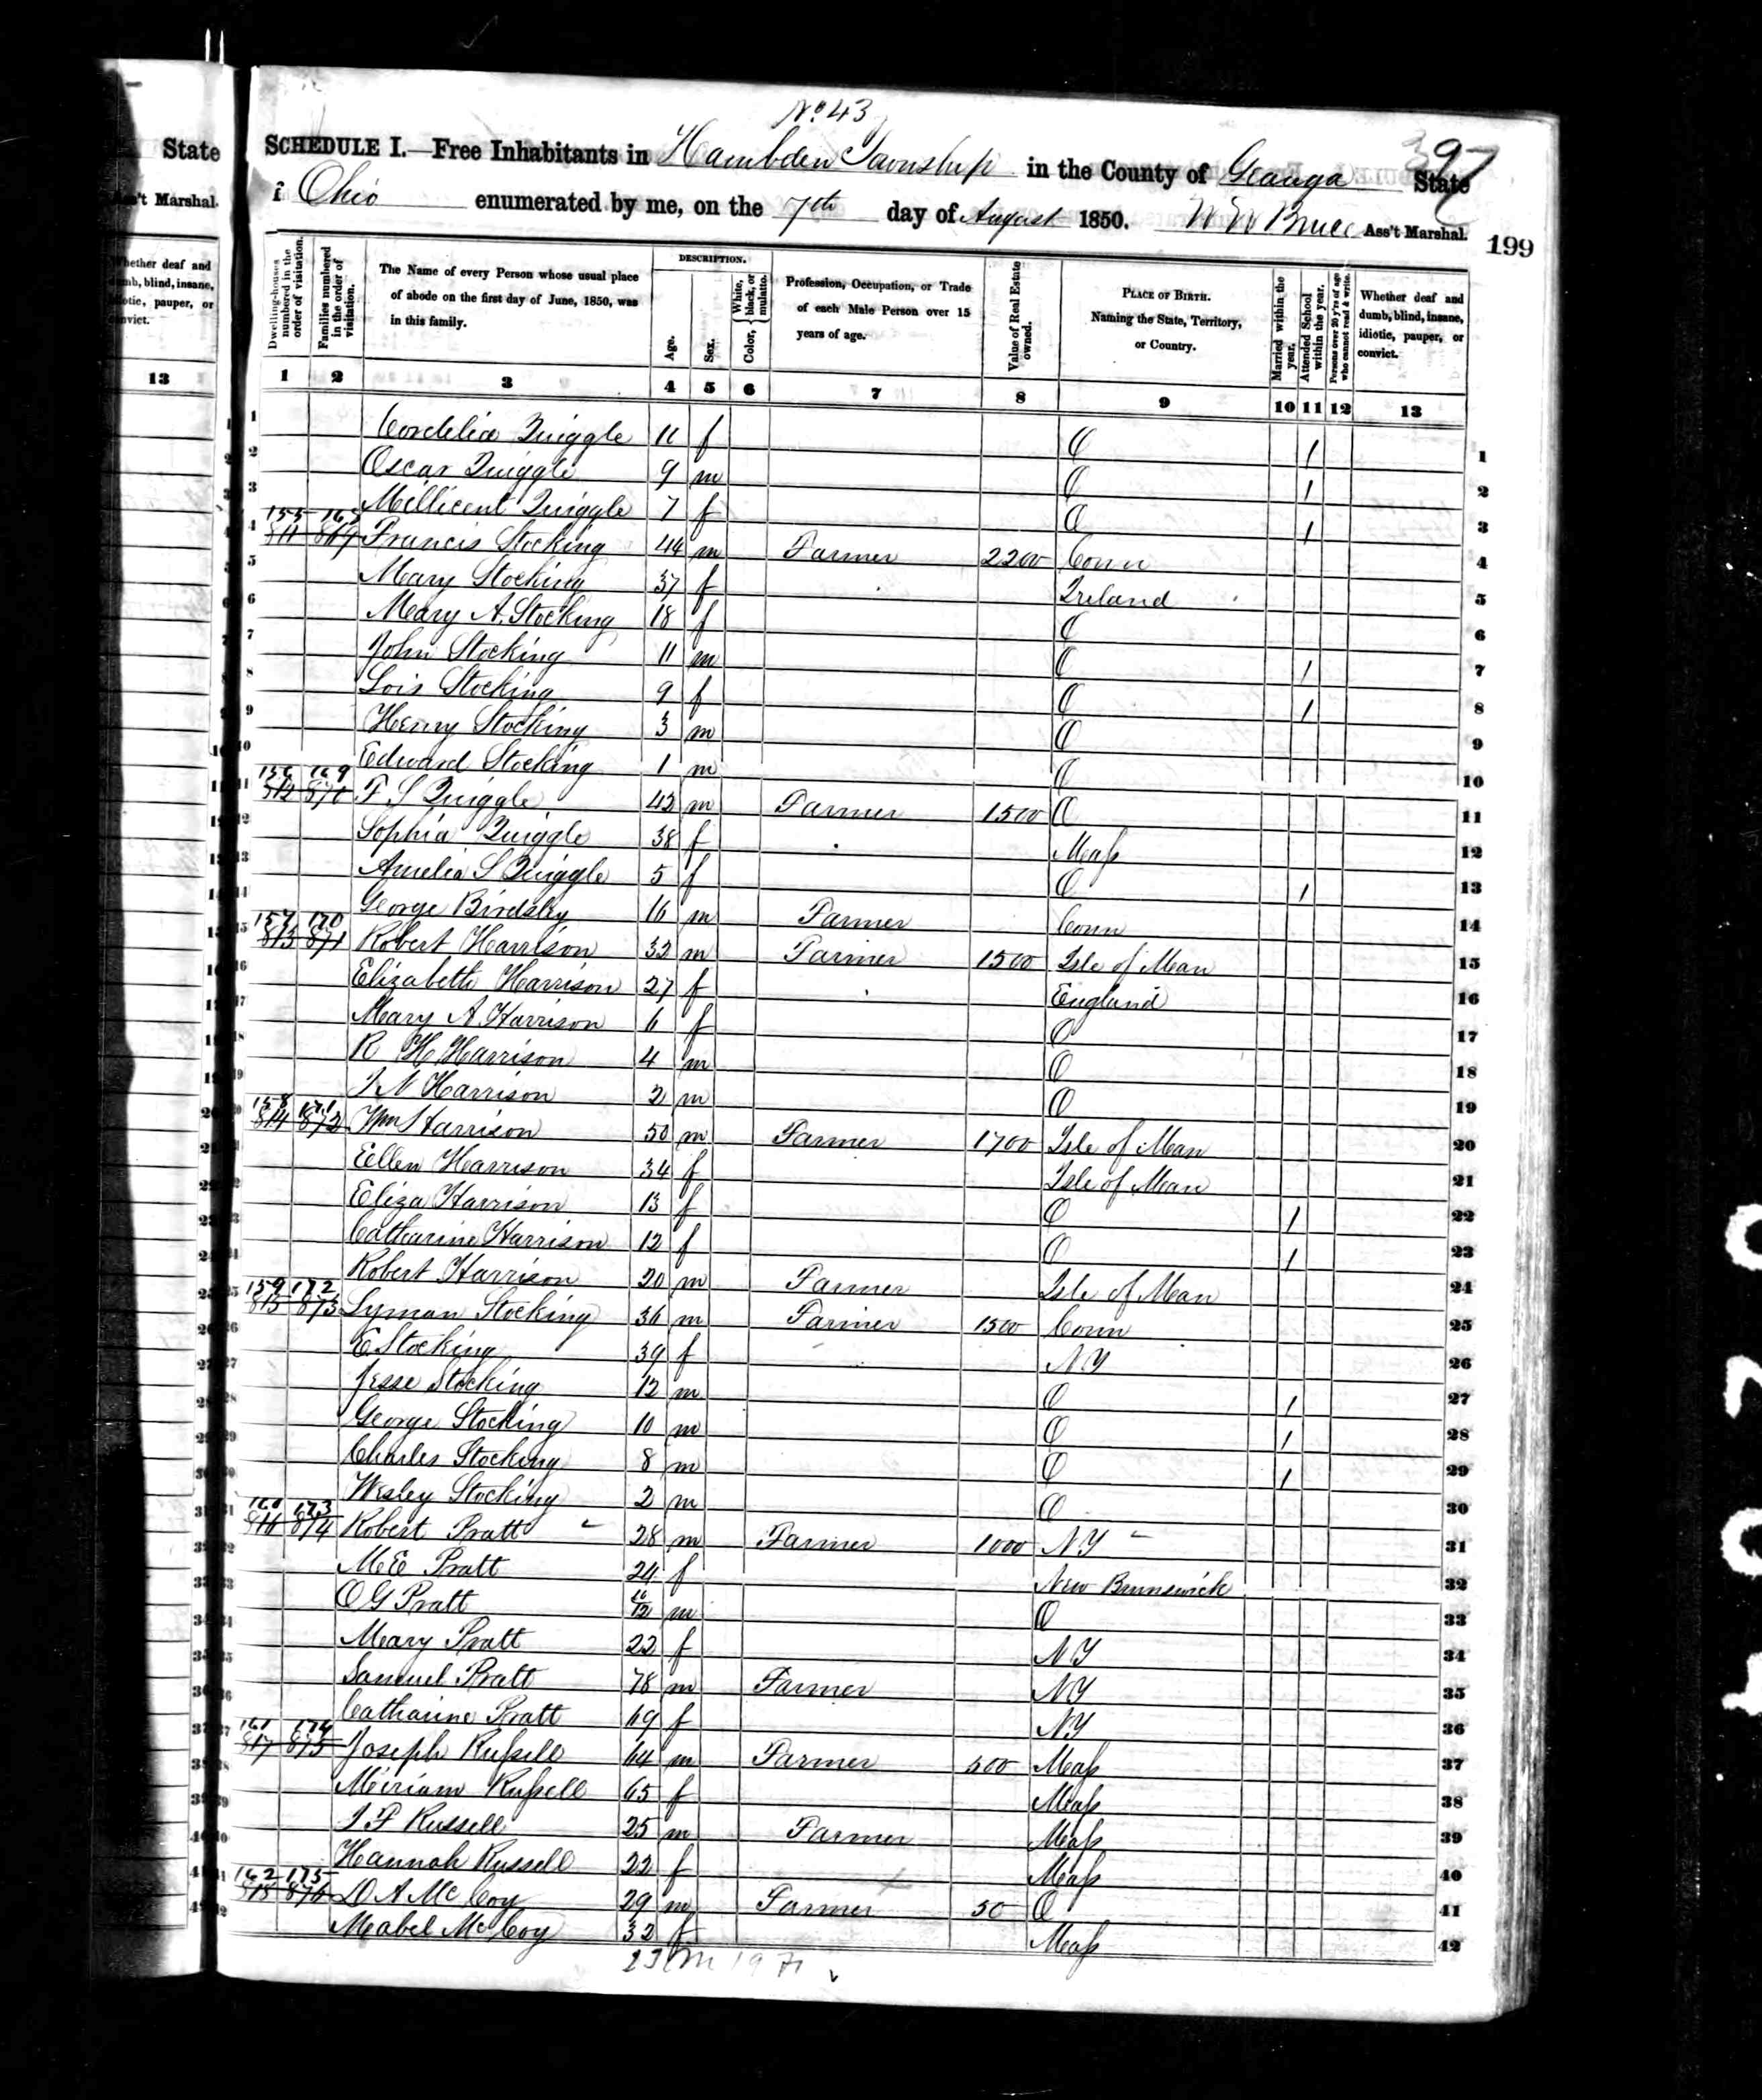 No 43
State
SCHEDULE I.—Free Inhabitants in Hambden Township in the County of Geauga State
397
f Ohio enumerated by me, on the 7th day of August 1850. W W Bruce Ass't Marshal.
199
Ass't Marshal.
Whether deaf and dumb, blind, insane, idiotic, pauper, or convict.
13
Dwelling-houses numbered in the order of visitation.
Families numbered in the order of visitation.
The Name of every Person whose usual place of abode on the first day of June, 1850, was in this family.
DESCRIPTION.
Age.
Sex.
Color, White, black, or mulatto.
Profession, Occupation, or Trade of each Male Person over 15 years of age.
Value of Real Estate owned.
PLACE OF BIRTH. Naming the State, Territory, or Country.
Married within the year.
Attended School within the year.
Persons over 20 y'rs of age who cannot read & write.
Whether deaf and dumb, blind, insane, idiotic, pauper, or convict.
1 2 3 4 5 6 7 8 9 10 11 12 13
1 Cordelia Quiggle 11 f O 1 1
2 Oscar Quiggle 9 m O 1 2
3 Millicent Quiggle 7 f O 1 3
155 168
4 811 869 Francis Stocking 44 m Farmer 2200 Conn 4
5 Mary Stocking 37 f Ireland 5
6 Mary A. Stocking 18 f O 6
7 John Stocking 11 m O 1 7
8 Lois Stocking 9 f O 1 8
9 Henry Stocking 3 m O 9
10 Edward Stocking 1 m O 10
156 169
11 812 870 F S Quiggle 42 m Farmer 1500 O 11
12 Sophia Quiggle 38 f Mass 12
13 Amelia S Quiggle 5 f O 1 13
14 George Birdsley 16 m Farmer Conn 14
157 170
15 813 871 Robert Harrison 32 m Farmer 1500 Isle of Man 15
16 Elizabeth Harrison 27 f England 16
17 Mary A Harrison 6 f O 17
18 R H Harrison 4 m O 18
19 J N Harrison 2 m O 19
158 171
20 814 872 Wm Harrison 50 m Farmer 1700 Isle of Man 20
21 Ellen Harrison 34 f Isle of Man 21
22 Eliza Harrison 13 f O 1 22
23 Catharine Harrison 12 f O 1 23
24 Robert Harrison 20 m Farmer Isle of Man 24
159 172
25 815 873 Lyman Stocking 36 m Farmer 1500 Conn 25
26 E Stocking 39 f N Y 26
27 Jesse Stocking 12 m O 1 27
28 George Stocking 10 m O 1 28
29 Charles Stocking 8 m O 1 29
30 Wesley Stocking 2 m O 30
160 173
31 816 874 Robert Pratt 28 m Farmer 1000 N Y 31
32 M E Pratt 24 f New Brunswick 32
33 O G Pratt m O 33
34 Mary Pratt 22 f N Y 34
35 Samuel Pratt 78 m Farmer N Y 35
36 Catharine Pratt 69 f N Y 36
161 174
37 817 875 Joseph Russell 64 m Farmer 500 Mass 37
38 Miriam Russell 65 f Mass 38
39 J F Russell 25 m Farmer Mass 39
40 Hannah Russell 22 f Mass 40
162 175
41 818 876 D A McCoy 29 m Farmer 50 O 41
42 Mabel McCoy 32 f Mass 42
23 m 19 f